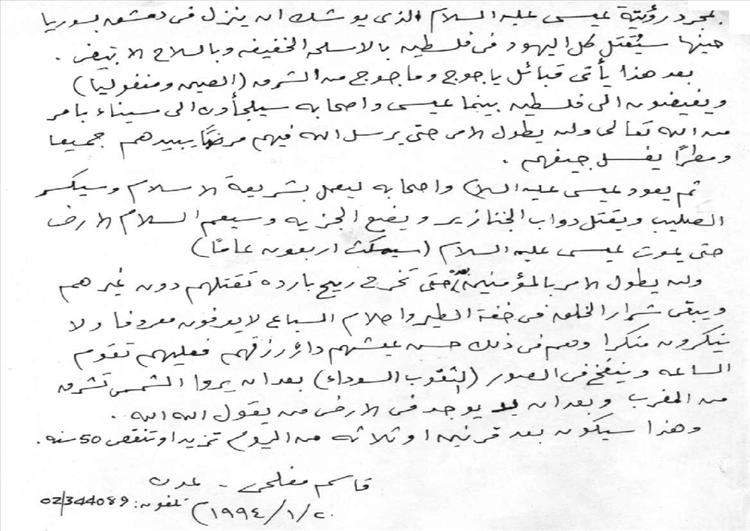 بمجرد رؤية عيسى عليه السلام الذى يوشك ان ينزل فى دمشق بسوريا
حينها سيُقتل كل اليهود فى فلسطين بالاسلحه الخفيفه وبالسلاح الابيض .
بعد هذا يأتى قبائل ياجوج وماجوج من الشرق (الصين ومنغوليا)
ويفيضون الى فلسطين بينما عيسى واصحابه سيلجأون الى سيناء بامر
من الله تعالى ولن يطول الامر حتى يرسل الله فيهم مرضًا يبيدهم جميعا
ومطرًا يغسل جيفهم .
ثم يعود عيسى عليه السلام واصحابه ليعمل بشريعة الاسلام وسيكسر
الصليب ويقتل دواب الخنازير ويضع الجزيه وسيعم السلام الارض
حتى يموت عيسى عليه السلام (سيمكث اربعون عامًا)
ولن يطول الامر بالمؤمنين حتى تخرج ريح بارده تقتلهم دون غيرهم
ويبقى شرار الخلق فى خفة الطير واحلام السباع لا يعرفون معروفا ولا
ينكرون منكرا وهم فى ذلك حسن عيشهم دائر رزقهم فعليهم تقوم
الساعه وينفخ فى الصور (الثقوب السوداء) بعد ان يروا الشمس تشرق
من المغرب وبعد ان لا يوجد فى الارض من يقول الله الله .
وهذا سيكون بعد قرنين او ثلاثه من اليوم تزيد او تنقص 50 سنه .
قاسم مفلحى - عدن
تلفون : 02/344089
٢٠/١/١٩٩٤م